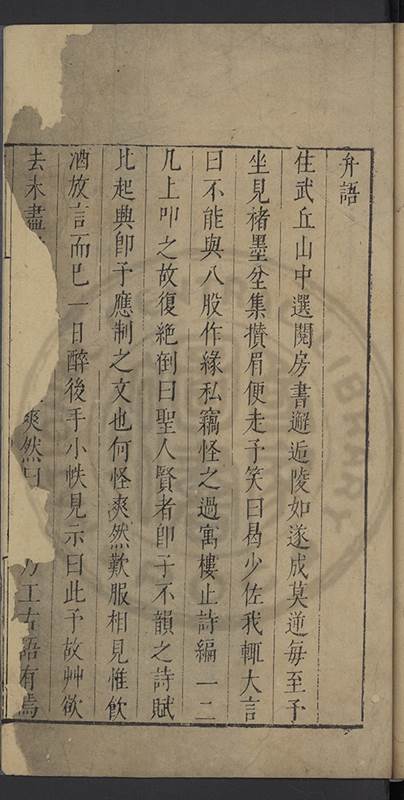 弁語
住武丘山中選閱房書邂逅陵如遂成莫逆每至予
坐見褚墨坌集攢眉便走予笑曰曷少佐我輒大言
曰不能與八股作緣私竊怪之過寓樓止詩編一二
几上叩之故復絕倒曰聖人賢者卽予不韻之詩賦
比起興卽予應制之文也何怪爽然歎服相見惟飮
酒放言而已一日醉後手小帙見示曰此予故艸欲
去未盡
爽然曰
乃工古語有焉